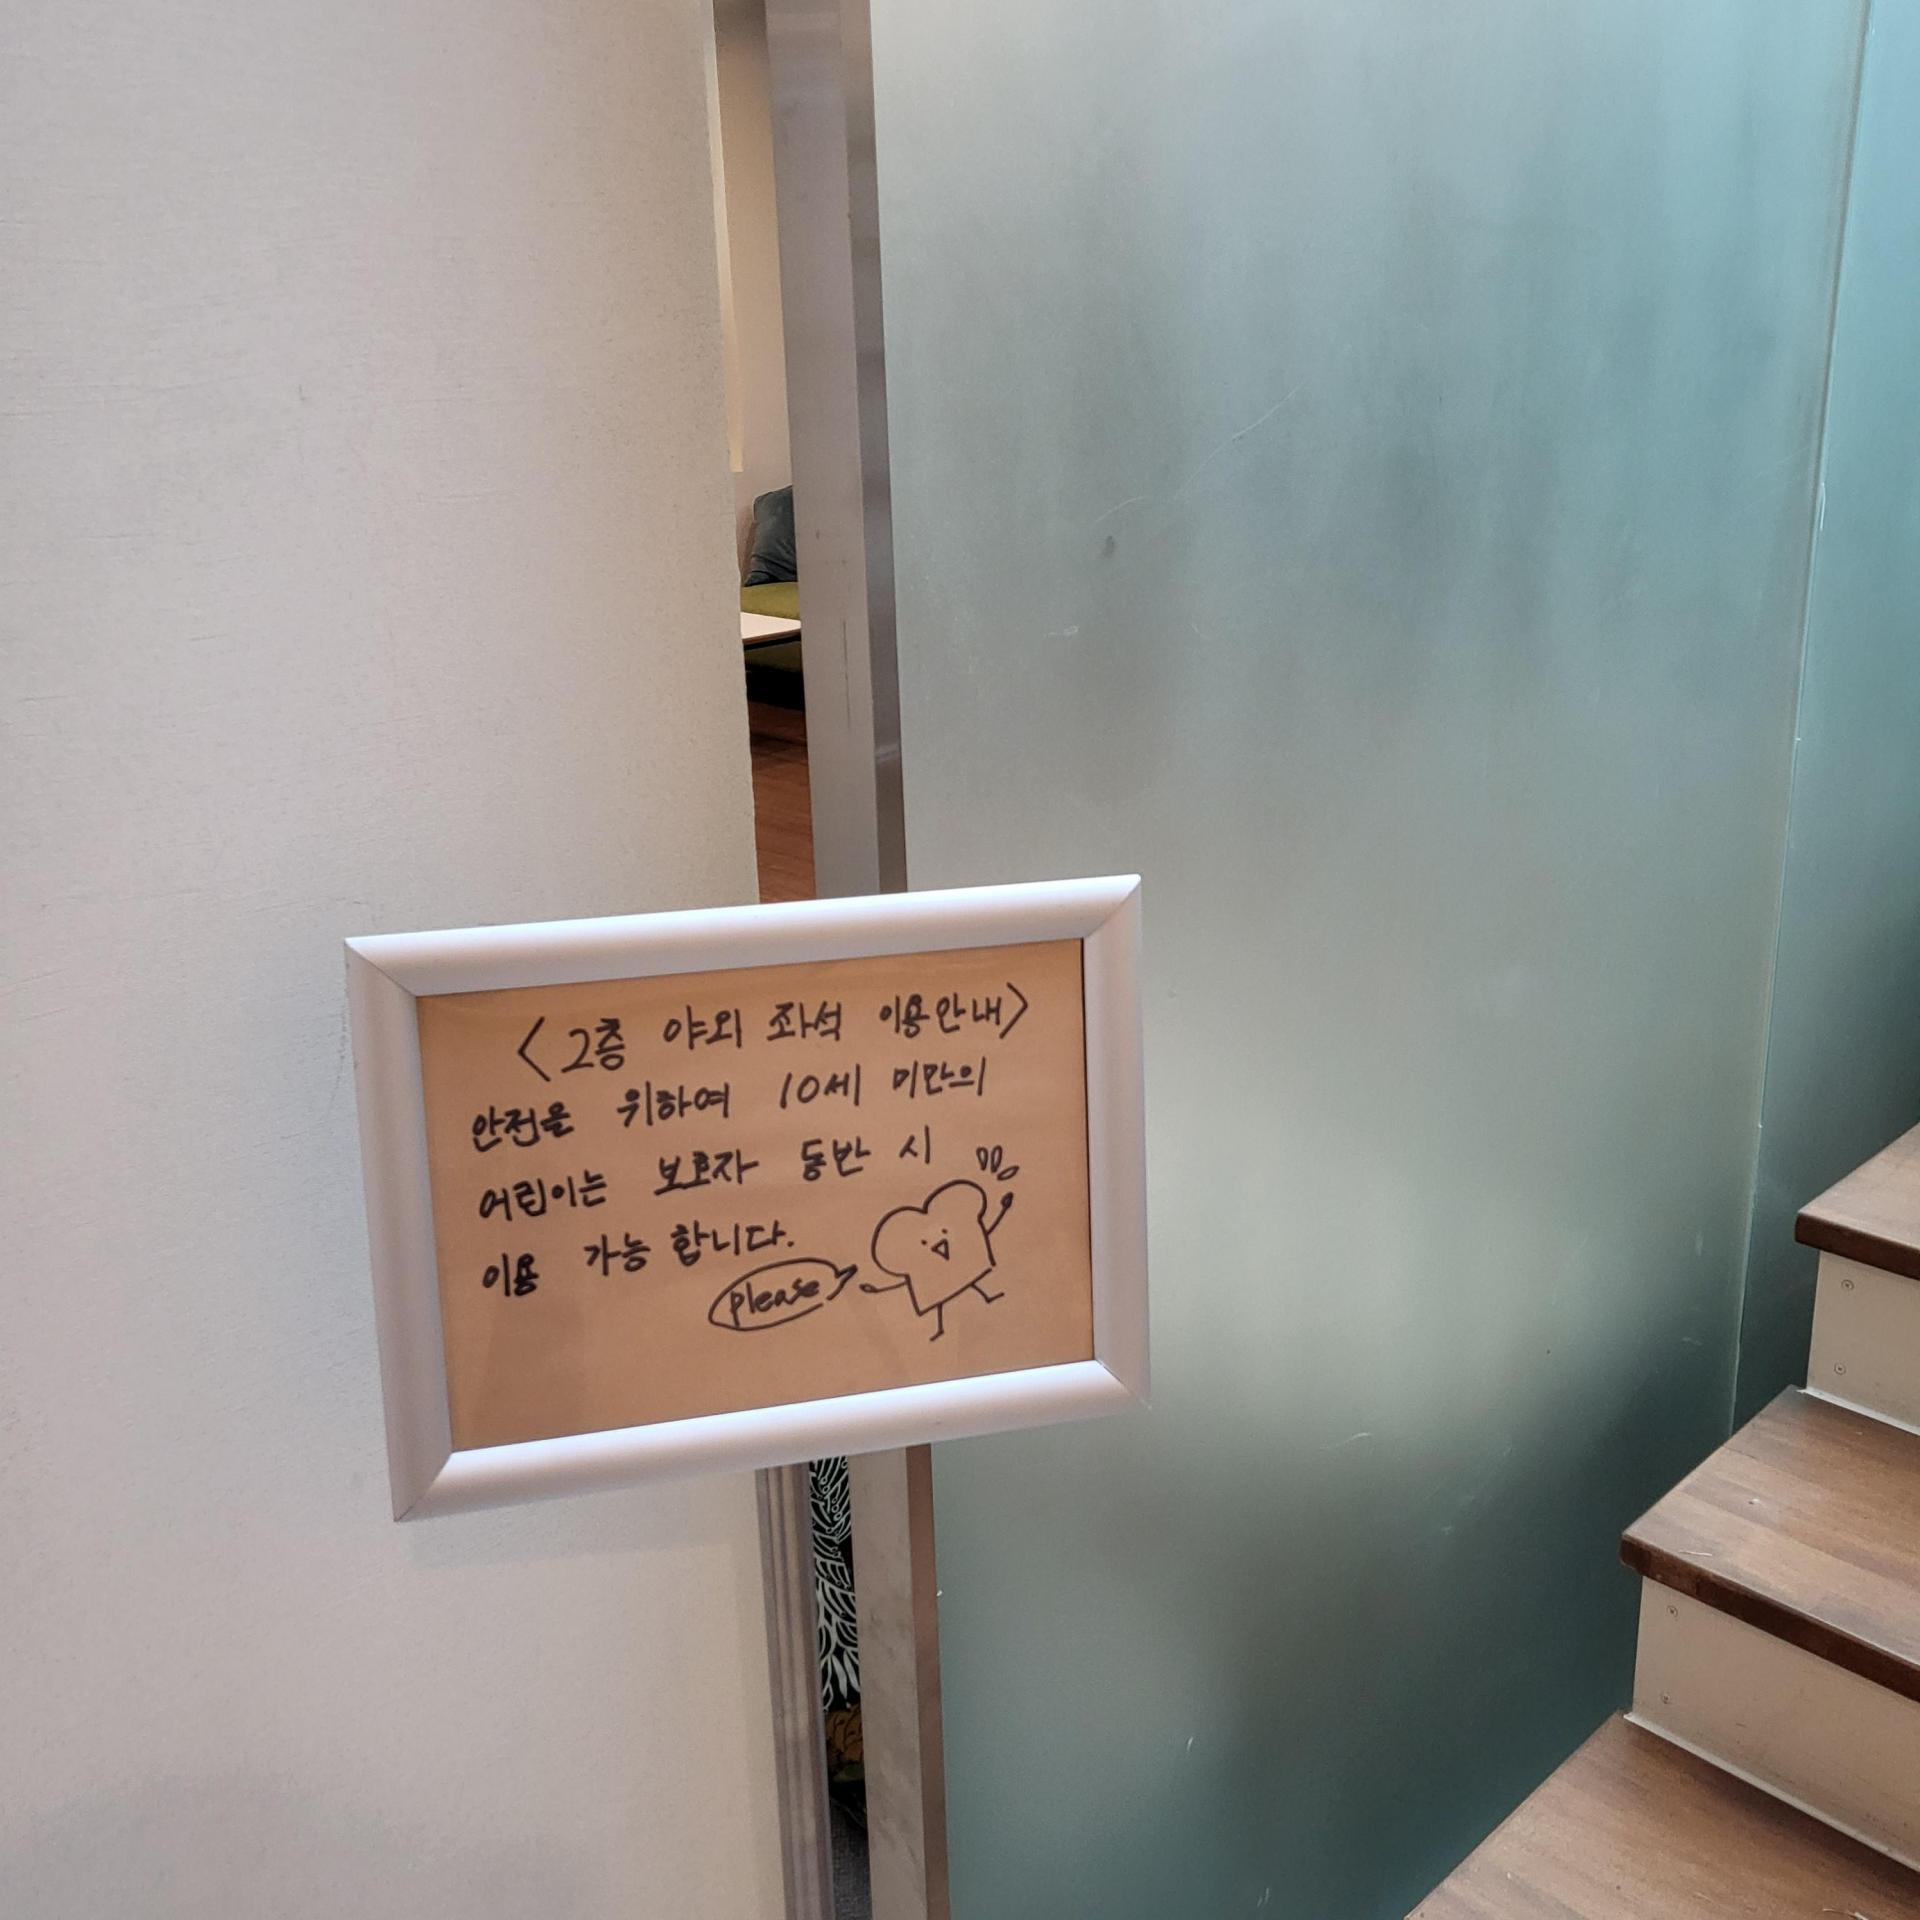 <2층 야외 좌석 이용안내>
안전을 위하여 10세 미만의
어린이는 보호자 동반 시
이용 가능 합니다.
please